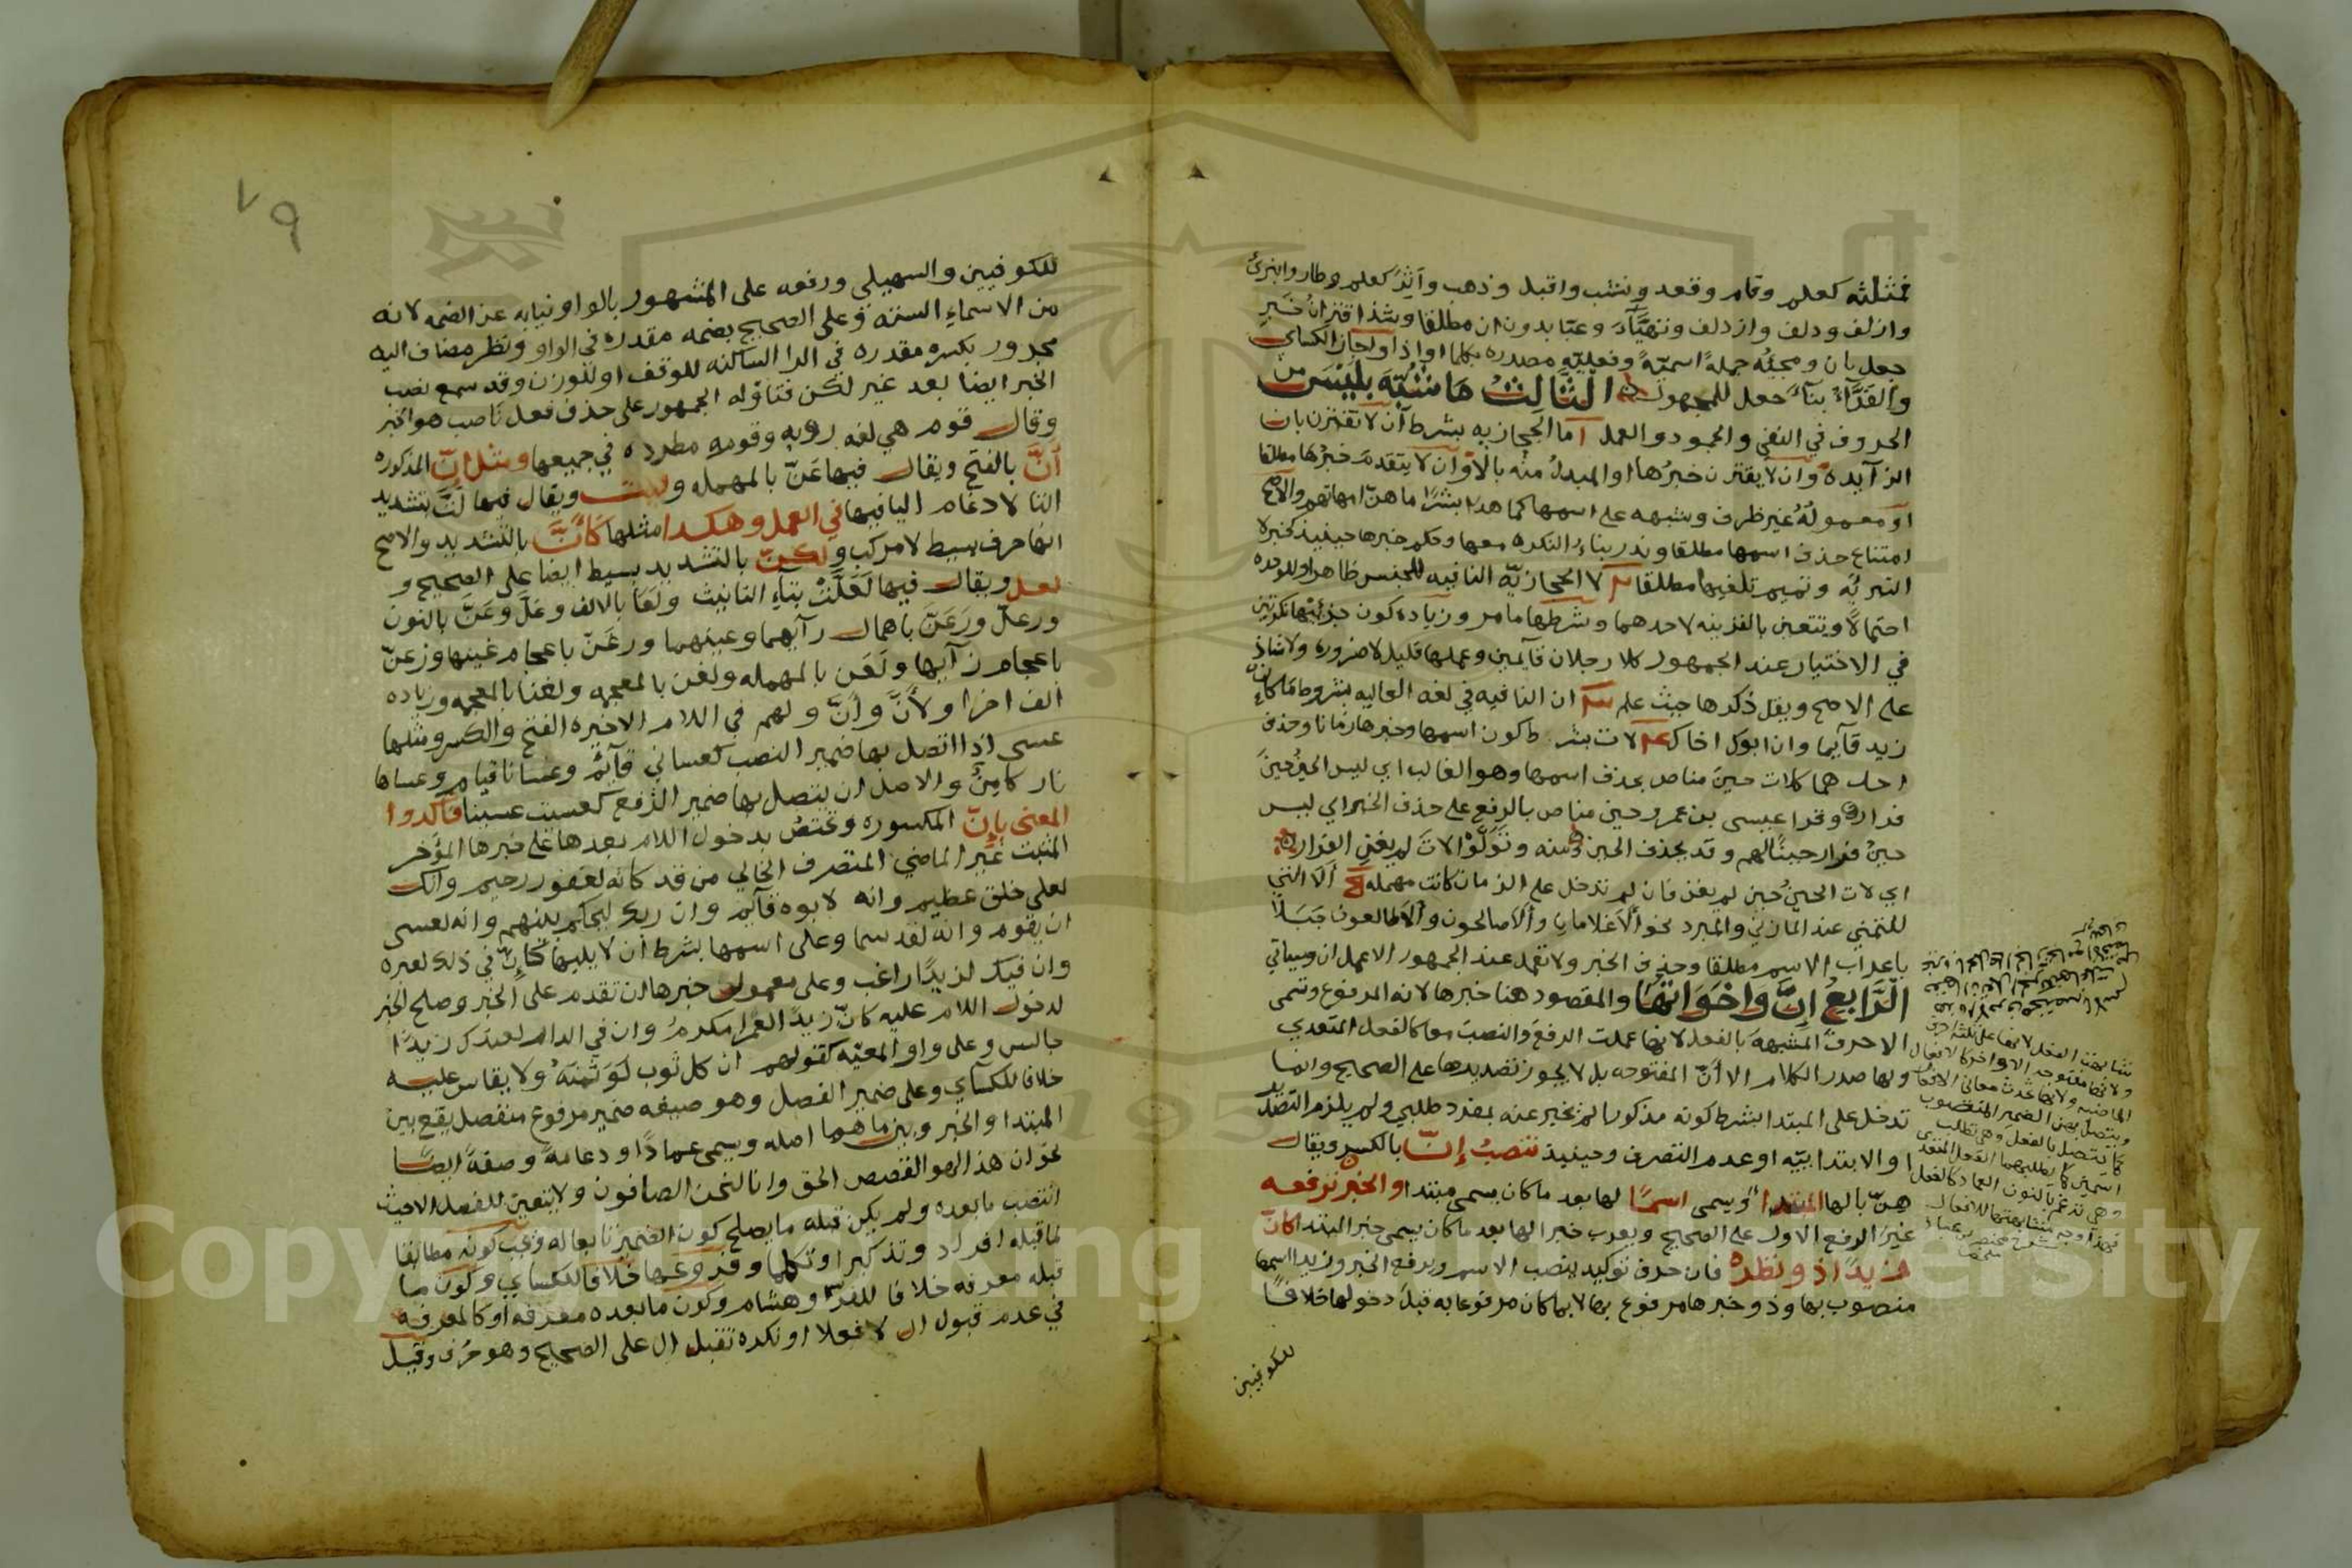 فمثلثه كعلم وقام وقعد ونشب واقبل وذهب وآثر كعلم وطار وانبرى
وازلف ودلف وازدلف وتهيّأ وعبّا بدون ان مطلقا وشذ اقتران خبر
جعل بان ومجيئه جملة اسمية وفعلية مصدره بكلما او اذا واجاز الكسائي
والفرّاء بناء جعل للمجهول الثالث ما شبّه بليس من
الحروف في النفي والجمود والعمل اما الحجازيه بشرط ان لا تقترن بان
الزايدة وان لا يقترن خبرها او المبدل منه بالا وان لا يتقدم خبرها مطلقا
او معموله غير ظرف وشبهه على اسمها كما هذا بشرا ما هنّ امهاتهم والاصح
امتناع حذف اسمها مطلقا وندر بناء النكره معها وحكم خبرها حينيذ كخبر لا
التبريه وتميم تلغيها مطلقا لا الحجازيّه النافيه للجنس ظاهرا وللوحده
احتمالا ويتعين بالقرينه لاحدهما وشرطها ما مر وزياده كون جزئيها نكرتين
في الاختيار عند الجمهور كلا رجلان قآيمين وعملها قليل لا ضروره ولا شاذ
على الاصح ويقل ذكرها حيث علم ان النافيه في لغه العاليه بشروط ما كان
زيد قآيما وان ابوك اخاك لات بشرط كون اسمها وخبرها زمانا وحذف
احدهما كلات حين مناص بحذف اسمها وهو الغالب اي ليس الحين حين
فرار وقرا عيسى بن عمر وحين مناص بالرفع على حذف الخبر اي ليس
حين فرار حينا لهم وقد يحذف الحين ومنه وتولّوا لات لم يغن الفرار
اي لات الحين حين لم يغن فان لم تدخل على الزمان كانت مهمله ألا التي
للتمني عند المازني والمبرد نحو ألا غلامان وألا صالحون وألا طالعون جبلا
باعراب الاسم مطلقا وحذف الخبر ولا تعمل عند الجمهور الا عمل ان وسياتي
الرابع إنّ واخواتها والمقصود هنا خبرها لانه المرفوع وتسمى
الاحرف المشبهة بالفعل لانها عملت الرفع والنصب معا كالفعل المتعدي
ولها صدر الكلام الا أنّ المفتوحه بل لا يجوز تصديرها على الصحيح وانما
تدخل على المبتدا بشرط كونه مذكورا لم يخبر عنه بمفرد طلبي ولم يلزم التصدير
او الابتدابيّه او عدم التصرف وحينيذ تنصب إنّ بالكسر ويقال
هنّ بالها المبتدا ويسمى اسما لها بعد ما كان يسمى مبتدا والخبر ترفعه
غير الرفع الاول على الصحيح ويعرب خبرا لها بعد ما كان يسمى خبر المبتدا كانّ
زيدا ذو نظره فان حرف توكيد ينصب الاسم ويرفع الخبر وزيدا اسمها
منصوب بها وذو خبرها مرفوع بها لا بما كان مرفوعا به قبل دخولها خلافا
للكوفيين
شابهت الفعل لانها على ثلثة احرف
ولانها مفتوحة الاواخر كالافعال
الماضيه ولانها حدث معاني الافعال
ويتصل بهن الضمير المنصوب
كما يتصل بالفعل وهي تطلب
اسمين كما يطلبهما الفعل المتعد
وهي تدعم بالنون العماد كالفعل
فهذا وجه مشابهتها للافعال
٧٩
للكوفيين والسهيلي ورفعه على المشهور بالواو نيابه عن الضمه لانه
من الاسماء الستة وعلى الصحيح بضمه مقدره في الواو ونظر مضاف اليه
مجرور بكسره مقدره في الرا الساكنه للوقف او للوزن وقد سمع نصب
الخبر ايضا بعد غير لكن فتاوله الجمهور على حذف فعل ناصب هو الخبر
وقال قوم هي لغه روبه وقومه مطرده في جميعها ومثل إنّ المذكوره
أنّ بالفتح ويقال فيها عنّ بالمهمله وليت ويقال فيها لتّ بتشديد
التا لادغام اليا فيها في العمل وهكذا مثلها كأنّ بالتشديد والاصح
انها حرف بسيط لا مركب ولكنّ بالتشديد بسيط ايضا على الصحيح و
لعل ويقال فيها لعلّت بتاء التانيث ولعا بالالف وعلّ وعنّ بالنون
ورعلّ ورعنّ باهمال رآيهما وعينهما ورغنّ باعجام غينها وزعنّ
باعجام زآيها ولعن بالمهمله ولغن بالمعجمه ولغنا بالمعجمه وزياده
الف اخرا ولأنّ وأنّ ولهم في اللام الاخيره الفتح والكسر ومثلها
عسى اذا اتصل بها ضمير النصب كعساني قآيم وعسانا قيام وعساها
نار كامن والاصل ان يتصل بها ضمير الرفع كعسيت عسينا فاكدوا
المعنى بإنّ المكسوره وتختص بدخول اللام بعدها على خبرها المؤخر
المثبت غير الماضي المتصرف الخالي من قد كانه لغفور رحيم وانك
لعلى خلق عظيم وانه لابوه قآيم وان ربك ليحكم بينهم وانه لعسى
ان يقوم وانه لقد سما وعلى اسمها بشرط ان لا يليها كإنّ في ذلك لعبره
وان فيك لزيدا راغب وعلى معمول خبرها ان تقدم على الخبر وصلح الخبر
لدخول اللام عليه كانّ زيدا لعمرا مكرم وان في الدار لعندك زيدا
جالس وعلى واو المعيّه كقولهم ان كل ثوب لو ثمنه ولا يقاس عليه
خلافا للكسآي وعلى ضمير الفصل وهو صيغه ضمير مرفوع منفصل يقع بين
المبتدا والخبر وبين ما هما اصله ويسمى عمادا ودعامة وصفة ايضا
نحو ان هذا لهو القصص الحق وانا لنحن الصافون ولا يتعين للفصل الا حيث
انتصب ما بعده ولم يكن قبله ما يصلح كون الضمير تابعا له ويجب كونه مطابقا
لما قبله افراد وتذكيرا وتكلما وفروعها خلافا للكسايي وكون ما
قبله معرفه خلافا للفرّا وهشام وكون ما بعده معرفه او كالمعرفه
في عدم قبول ال لا فعلا او نكره تقبل ال على الصحيح وهو حرف وقيل